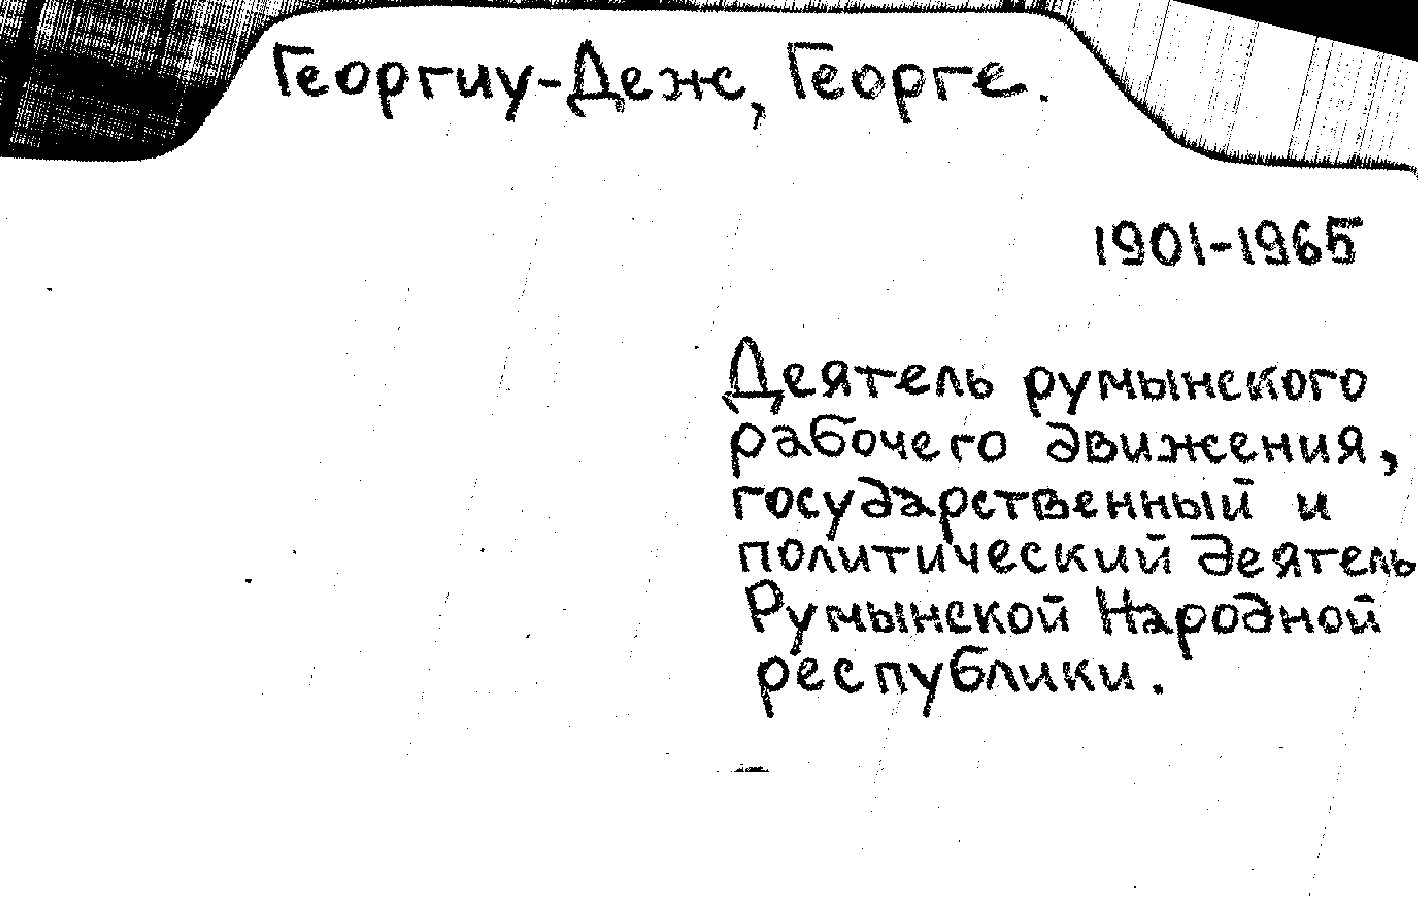 Георгиу-Деж, Георге.
1901-1965
Деятель румынского
рабочего движения,
государственный и
политический деятель
Румынской Народной
республики.